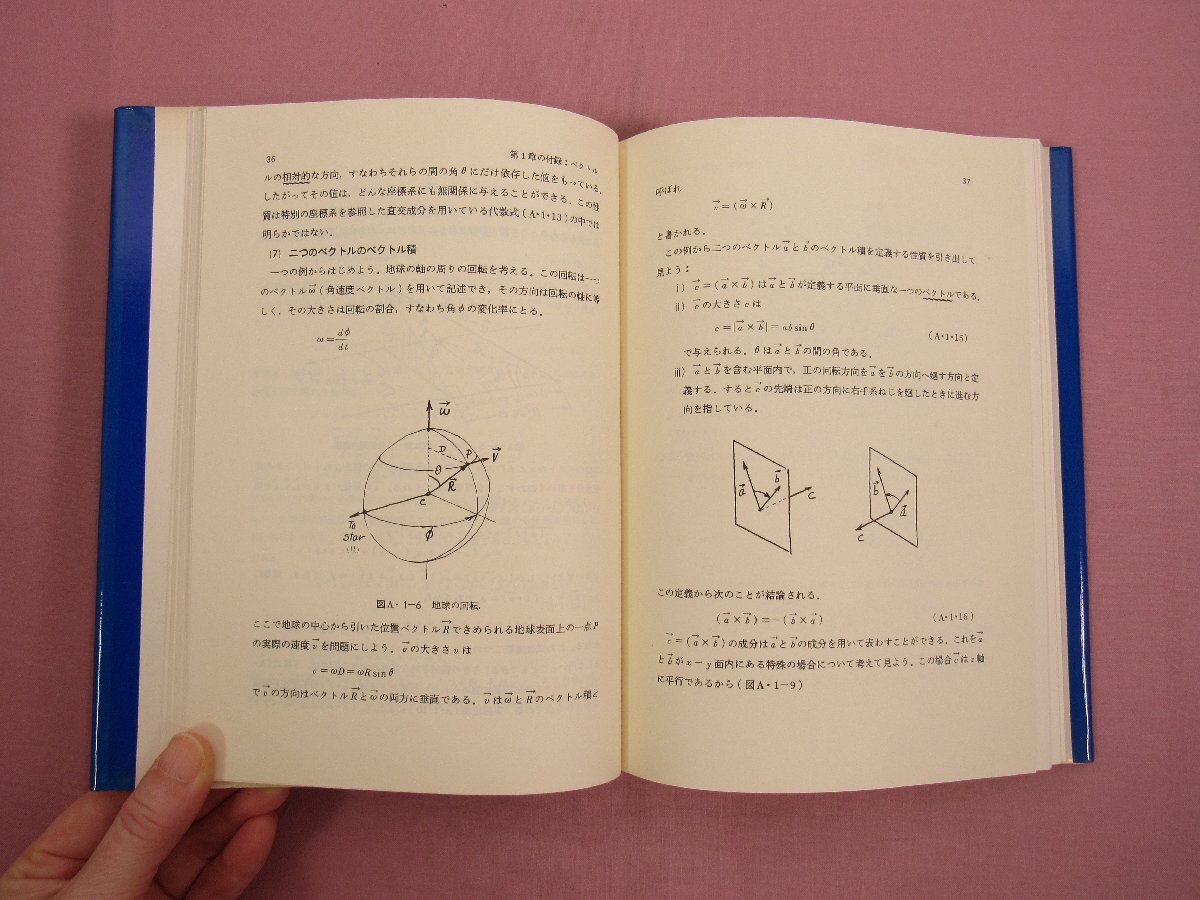 36
第1章の付録：ベクトル
ルの相対的な方向，すなわちそれらの間の角θにだけ依存した値をもっている．
したがってその値は，どんな座標系にも無関係に与えることができる．この性
質は特別の座標系を参照した直交成分を用いている代数式(A・1・13)の中では
明らかではない．
〔7〕 二つのベクトルのベクトル積
一つの例からはじめよう．地球の軸の周りの回転を考える．この回転は一つ
のベクトルω→(角速度ベクトル)を用いて記述でき，その方向は回転の軸に等
しく，その大きさは回転の割合，すなわち角φの変化率にとる．
ω=dφ/dt
ω→
D
P
V→
θ
R→
C
To
star
φ→
図A・1−6 地球の回転．
ここで地球の中心から引いた位置ベクトルR→できめられる地球表面上の一点P
の実際の速度v→を問題にしよう．v→の大きさvは
v=ωD=ωR sin θ
でv→の方向はベクトルR→とω→の両方に垂直である．v→はω→とR→のベクトル積と
37
呼ばれ
v→=(ω→×R→)
と書かれる．
この例から二つのベクトルa→とb→のベクトル積を定義する性質を引き出して
見よう：
i) c→=(a→×b→)はa→とb→が定義する平面に垂直な一つのベクトルである．
ii) c→の大きさcは
c=|a→×b→|=ab sin θ (A・1・15)
で与えられる．θはa→とb→の間の角である．
iii) a→とb→を含む平面内で，正の回転方向をa→をb→の方向へ廻す方向と定
義する．するとc→の先端は正の方向に右手系ねじを廻したときに進む方
向を指している．
a→ b→ c
b→ a→ c
この定義から次のことが結論される．
(a→×b→)=−(b→×a→) (A・1・16)
c→=(a→×b→)の成分はa→とb→の成分を用いて表わすことができる．これをa→
とb→がx−y面内にある特殊の場合について考えて見よう．この場合c→はz軸
に平行であるから(図A・1−9)